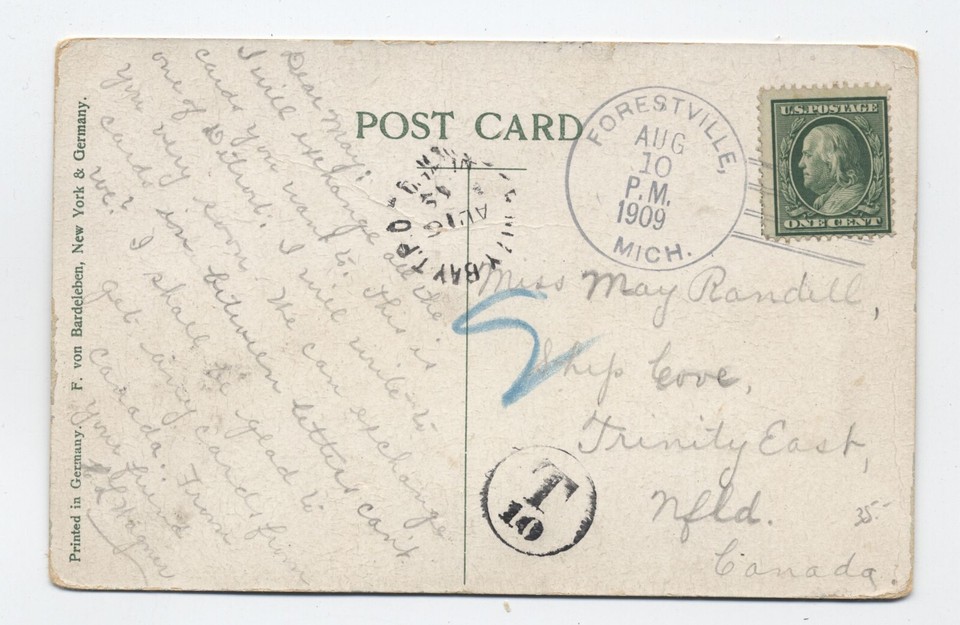 Printed in Germany. F. von Bardeleben, New York & Germany.
POST CARD
Dear May;
I will exchange all the
cards you want to. This is
one of Detroit. I will write to
you very soon. We can exchange
cards in between letters can't
we? I shall be glad to
get any cards from
Canada.
Your friend
Wagner
FORESTVILLE,
AUG
10
P.M.
1909
MICH.
U.S. POSTAGE
ONE CENT
T.P.O
BAY
Miss May Randell,
Ship Cove,
Trinity East,
Nfld.
Canada.
T
10
35-